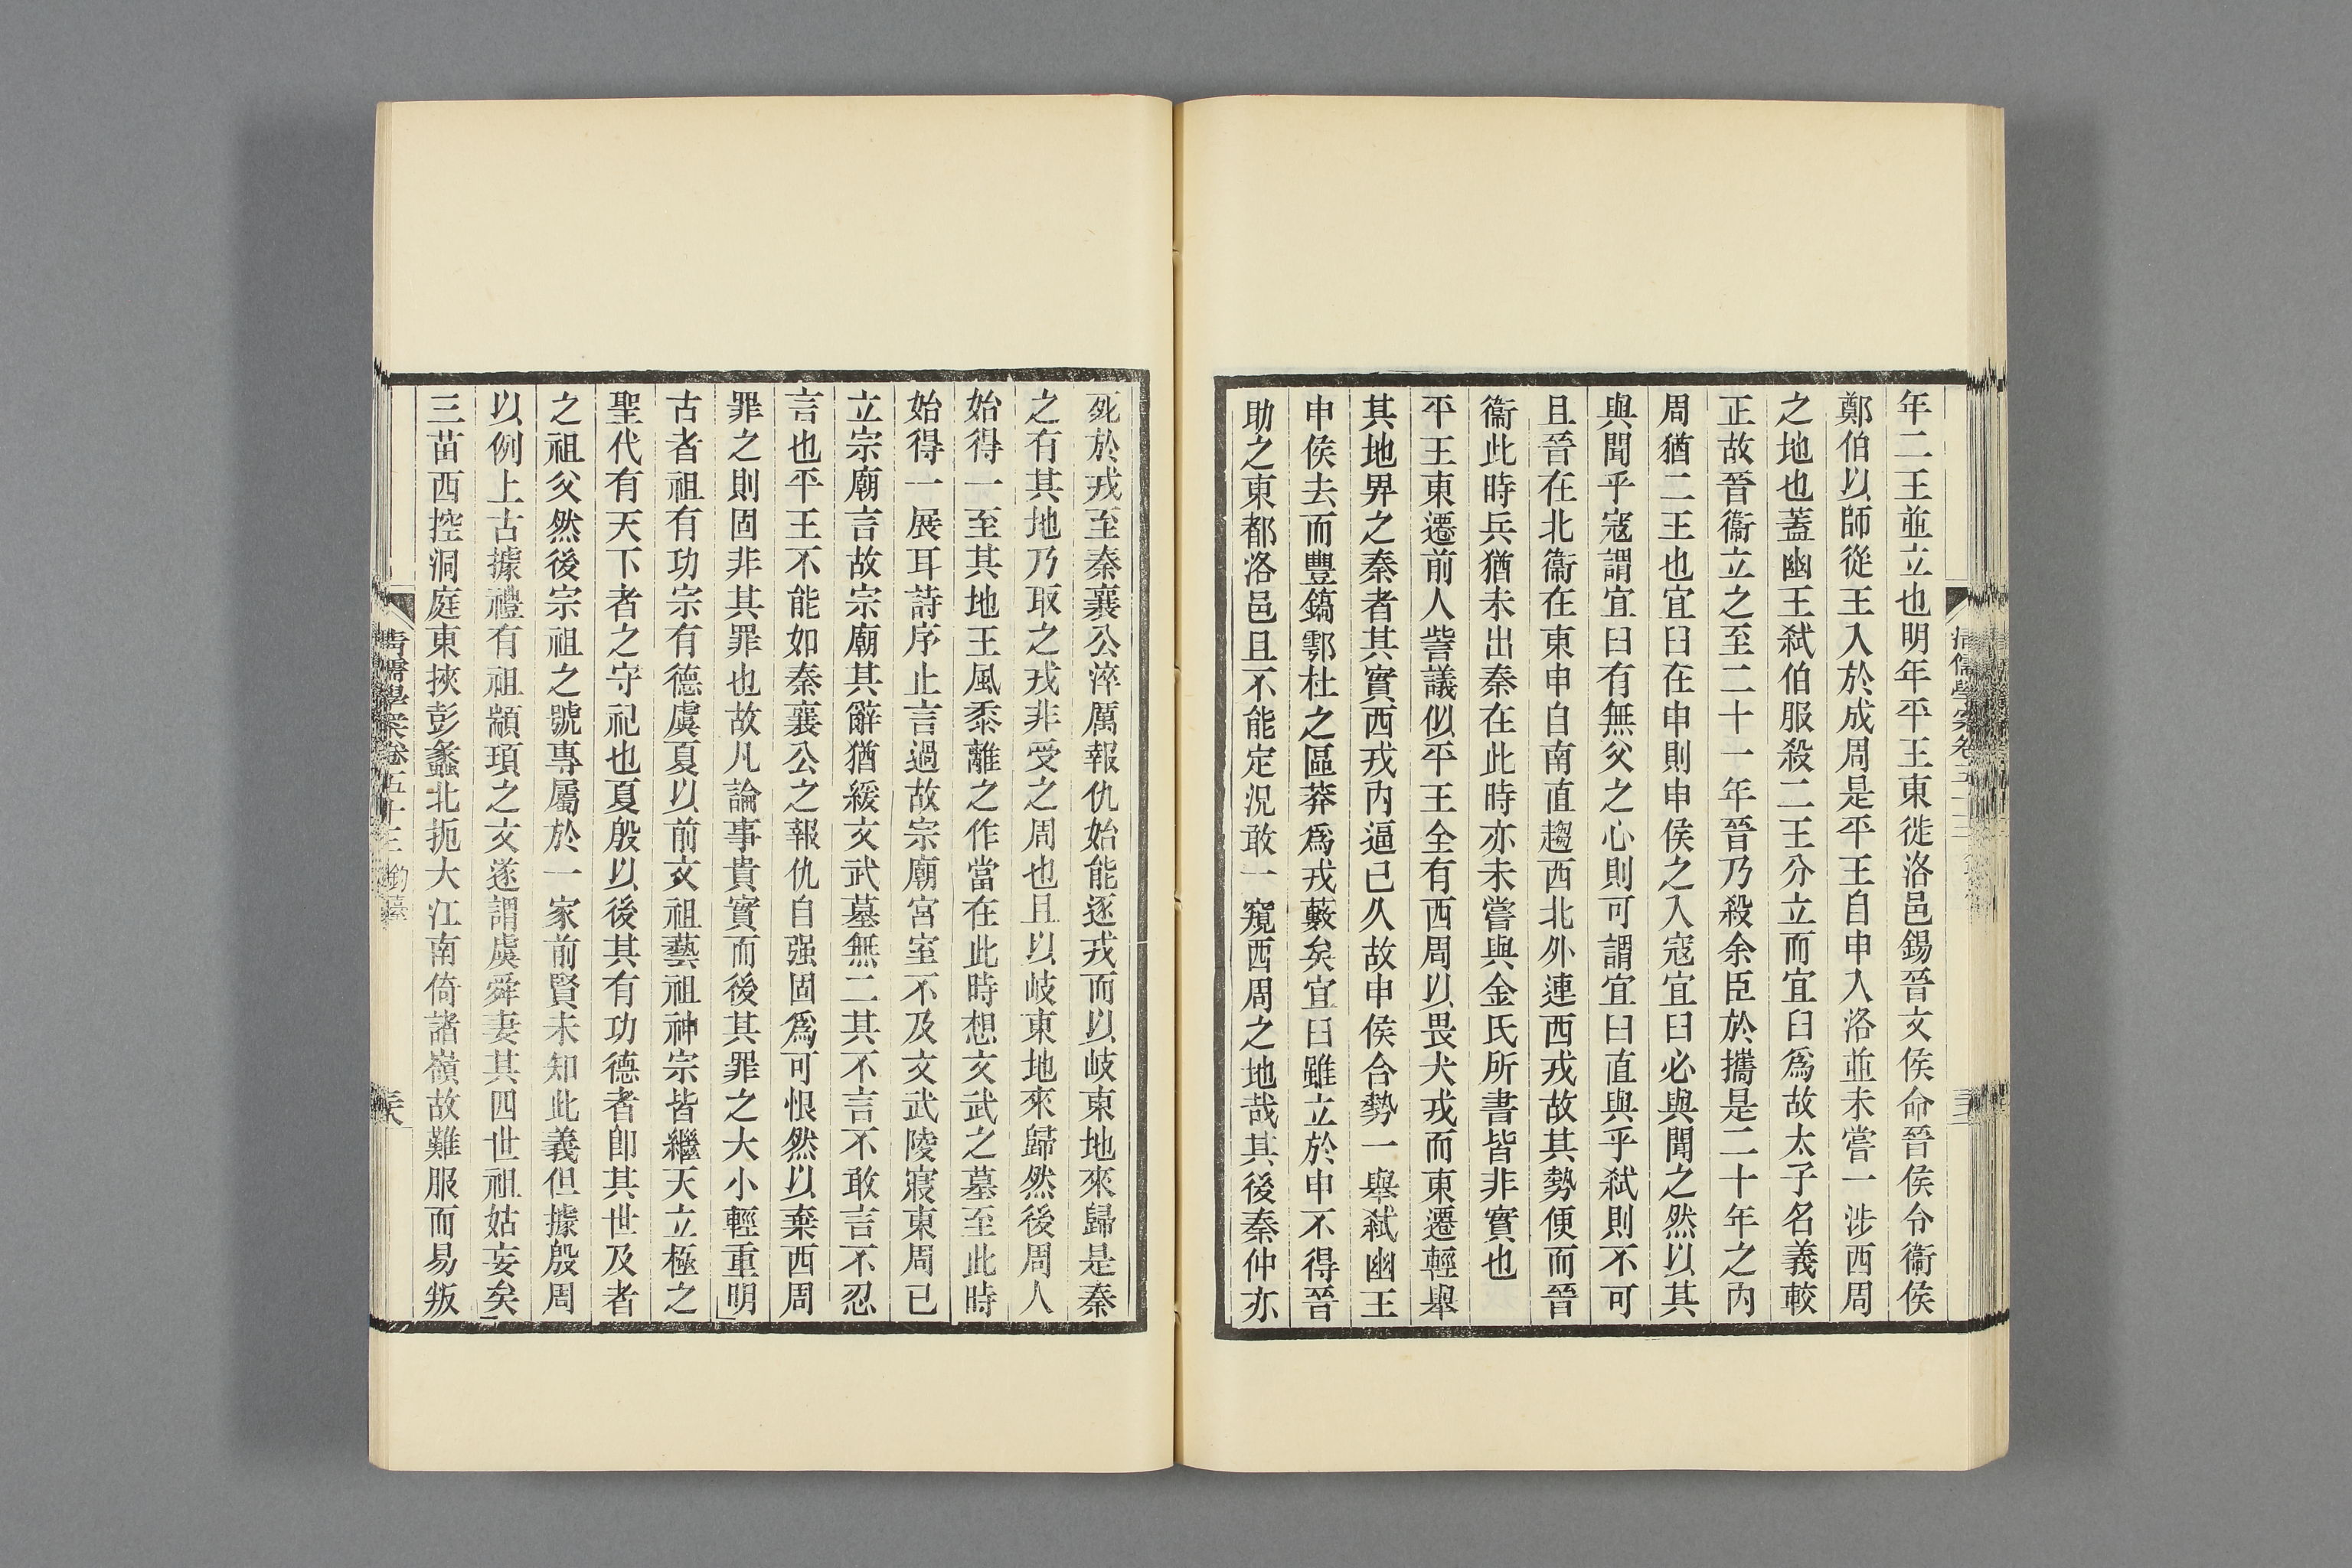 年二王並立也明年平王東徙洛邑錫晉文侯命晉侯令衞侯
鄭伯以師從王入於成周是平王自申入洛並未嘗一涉西周
之地也蓋幽王弒伯服殺二王分立而宜臼爲故太子名義較
正故晉衞立之至二十一年晉乃殺余臣於攜是二十年之內
周猶二王也宜臼在申則申侯之入寇宜臼必與聞之然以其
與聞乎寇謂宜臼有無父之心則可謂宜臼直與乎弒則不可
且晉在北衞在東申自南直趨西北外連西戎故其勢便而晉
衞此時兵猶未出秦在此時亦未嘗與金氏所書皆非實也
平王東遷前人訾議似平王全有西周以畏犬戎而東遷輕舉
其地畀之秦者其實西戎內逼已久故申侯合勢一舉弒幽王
申侯去而豐鎬鄠杜之區莽爲戎藪矣宜臼雖立於申不得晉
助之東都洛邑且不能定況敢一窺西周之地哉其後秦仲亦
死於戎至秦襄公淬厲報仇始能逐戎而以岐東地來歸是秦
之有其地乃取之戎非受之周也且以岐東地來歸然後周人
始得一至其地王風黍離之作當在此時想文武之墓至此時
始得一展耳詩序止言過故宗廟宮室不及文武陵寢東周已
立宗廟言故宗廟其辭猶緩文武墓無二其不言不敢言不忍
言也平王不能如秦襄公之報仇自强固爲可恨然以棄西周
罪之則固非其罪也故凡論事貴實而後其罪之大小輕重明
古者祖有功宗有德虞夏以前文祖藝祖神宗皆繼天立極之
聖代有天下者之守祀也夏殷以後其有功德者卽其世及者
之祖父然後宗祖之號專屬於一家前賢未知此義但據殷周
以例上古據禮有祖顓頊之文遂謂虞舜妻其四世祖姑妄矣
三苗西控洞庭東挾彭蠡北扼大江南倚諸嶺故難服而易叛
清儒學案卷五十三 鈞臺